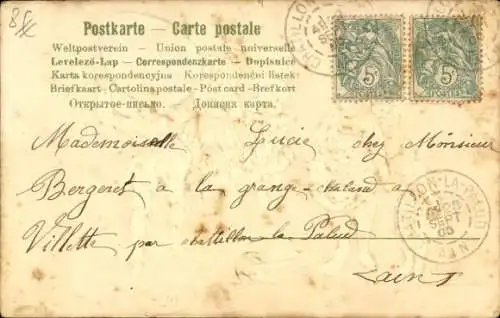 Postkarte – Carte postale
Weltpostverein – Union postale universelle
Levelező-Lap – Correspondenzkarte – Dopisnice
Karta korespondencyjna Korespondenční listek
Briefkaart – Cartolina postale – Post card – Brefkort
Открытое-письмо. Дописна карта.
5
5
Mademoiselle Lucie chez Monsieur
Bergeret à la grange
Villette par chatillon la Palud
Ain
CHATILLON-LA-PALUD
SEPT
05